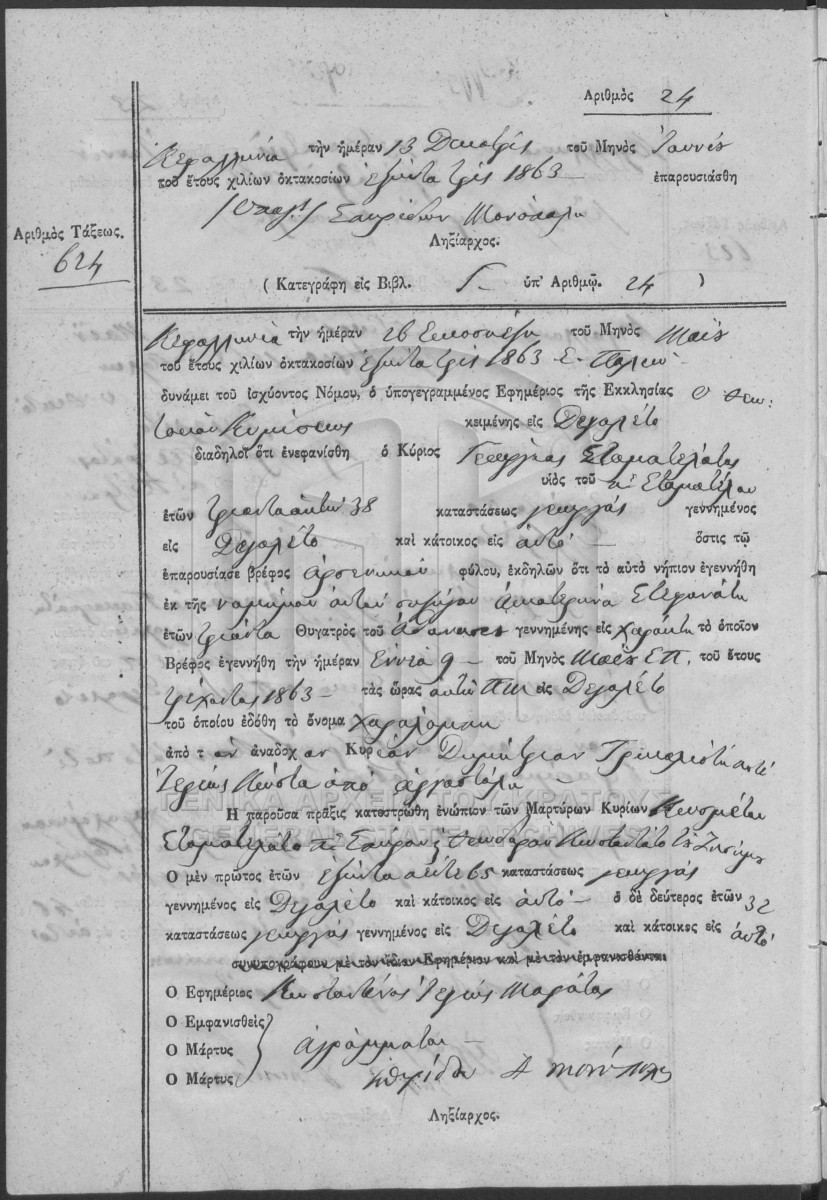 Ἀριθμὸς 24
Κεφαλληνία τὴν ἡμέραν 13 Δεκατρεῖς τοῦ Μηνὸς Ἰουνίου
τοῦ ἔτους χιλίων ὀκτακοσίων ἑξῆντα τρία 1863 — ἐπαρουσιάσθη
Σπυρίδων Μονόπολης
Ληξίαρχος.
Ἀριθμὸς Τάξεως.
624
( Κατεγράφη εἰς Βιβλ. Γ — ὑπ' Ἀριθμῷ. 24 )
Κεφαλληνία τὴν ἡμέραν 26 τοῦ Μηνὸς Μαΐου
τοῦ ἔτους χιλίων ὀκτακοσίων ἑξῆντα τρία 1863 Ε. Παλαιὸν
δυνάμει τοῦ ἰσχύοντος Νόμου, ὁ ὑπογεγραμμένος Ἐφημέριος τῆς Ἐκκλησίας Θεο-
τόκου Κοιμήσεως κειμένης εἰς Διγαλέτο
διαδηλοῖ ὅτι ἐνεφανίσθη ὁ Κύριος Γεώργιος Σταματελάτος
υἱὸς τοῦ π. Σταματέλου
ἐτῶν τριάντα ὀκτὼ 38 καταστάσεως γεωργὸς γεννημένος
εἰς Διγαλέτο καὶ κάτοικος εἰς αὐτό — ὅστις τῷ
ἐπαρουσίασε βρέφος ἀρσενικοῦ φύλου, ἐκδηλῶν ὅτι τὸ αὐτὸ νήπιον ἐγεννήθη
ἐκ τῆς νομίμου αὐτοῦ συζύγου Ἀικατερίνα Στεφανάτου
ἐτῶν τριάντα Θυγατρὸς τοῦ Ἀθανάση γεννημένης εἰς Χαράκτι τὸ ὁποῖον
Βρέφος ἐγεννήθη τὴν ἡμέραν Ἐννέα 9 — τοῦ Μηνὸς Μαΐου Ε.Π. τοῦ ἔτους
1863 — τὰς ὥρας ὀκτὼ πμ εἰς Διγαλέτο
τοῦ ὁποίου ἐδόθη τὸ ὄνομα Χαράλαμπη
ἀπὸ τ ὸν ἀνάδοχ ον Κύρ ιον Δημήτριον
ἱερέως Κώστα ἀπὸ Ἀργοστόλι —
Ἡ παροῦσα πρᾶξις κατεστρώθη ἐνώπιον τῶν Μαρτύρων Κυρίων
Σταματελάτο π. Σπύρου Κωσταντάτο
Ὁ μὲν πρῶτος ἐτῶν ἑξῆντα πέντε 65 καταστάσεως γεωργὸς
γεννημένος εἰς Διγαλέτο καὶ κάτοικος εἰς αὐτό — ὁ δὲ δεύτερος ἐτῶν 32
καταστάσεως γεωργὸς γεννημένος εἰς Διγαλέτο καὶ κάτοικος εἰς αὐτό
συνυπογράφουν μὲ τὸν ἴδιον Ἐφημέριον καὶ μὲ τὸν ἐμφανισθέντα.
Ὁ Ἐφημέριος Κωσταντῖνος ἱερεὺς Μαράτος
Ὁ Ἐμφανισθεὶς
Ὁ Μάρτυς ἀγράμματοι —
Ὁ Μάρτυς
Ληξίαρχος.
ΓΕΝΙΚΑ ΑΡΧΕΙΑ ΤΟΥ ΚΡΑΤΟΥΣ
GENERAL STATE ARCHIVES